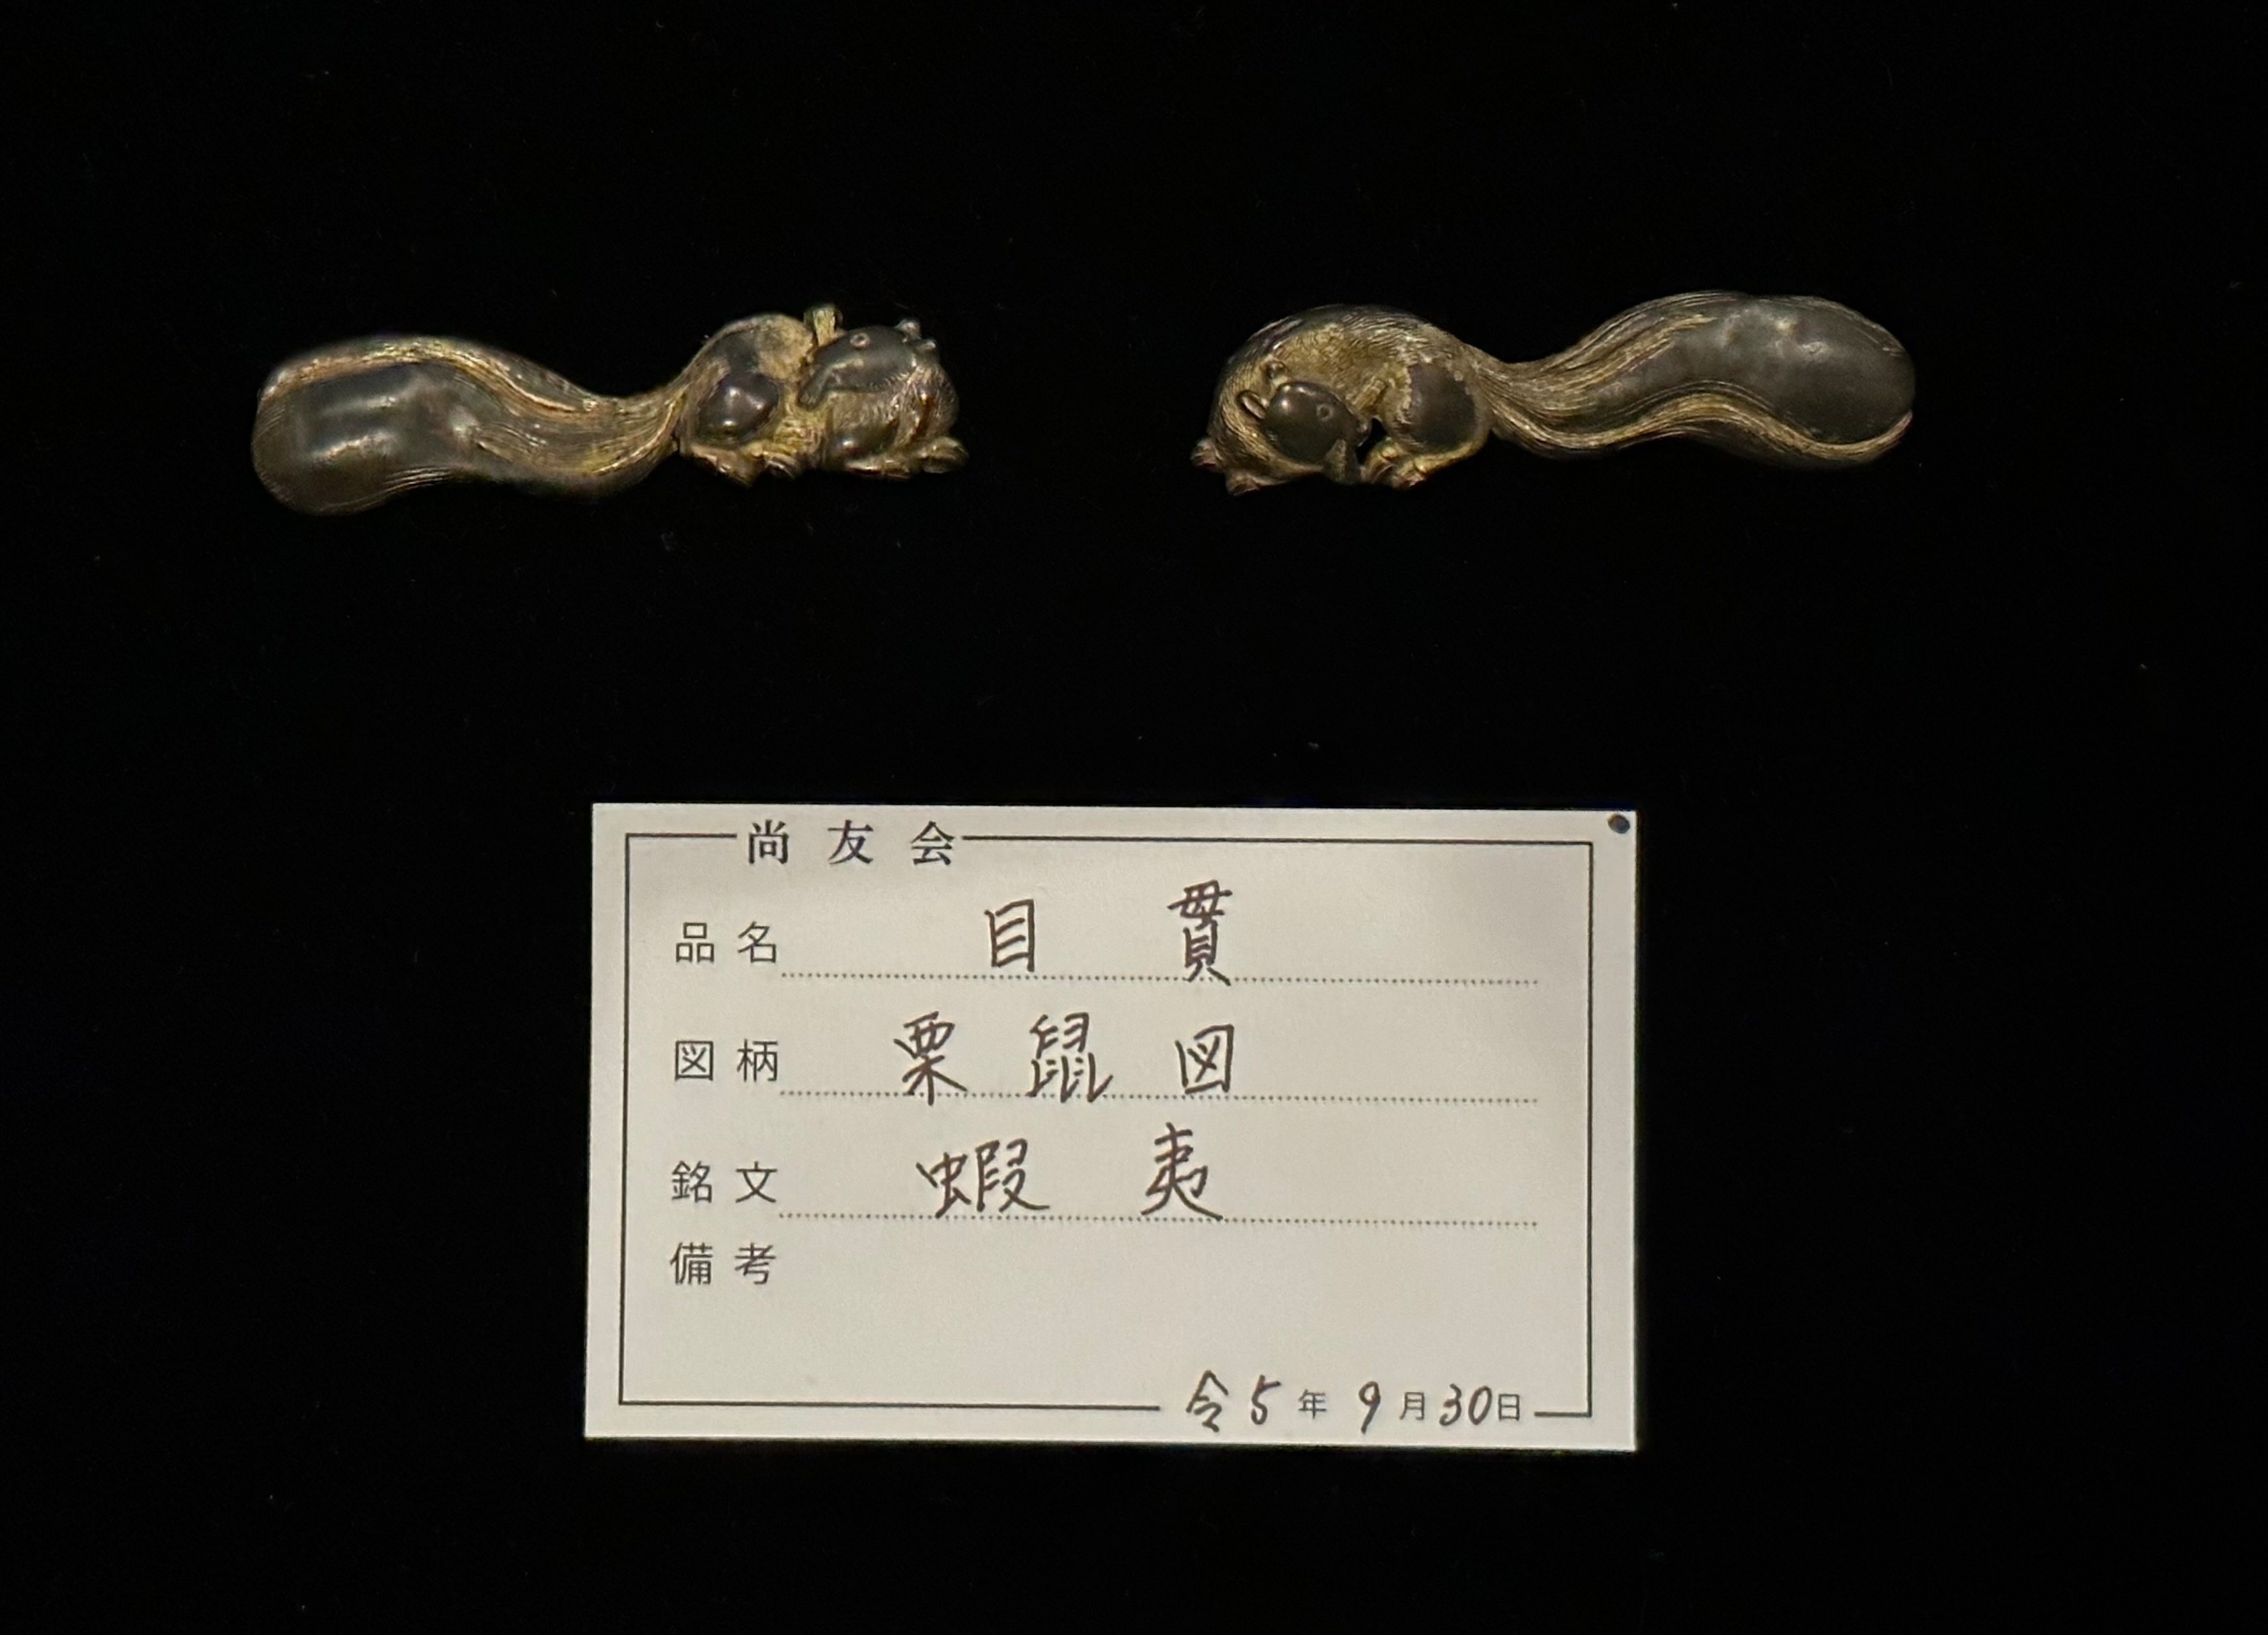 尚友会
品名 目貫
図柄 栗鼠図
銘文 蝦夷
備考
令5年9月30日